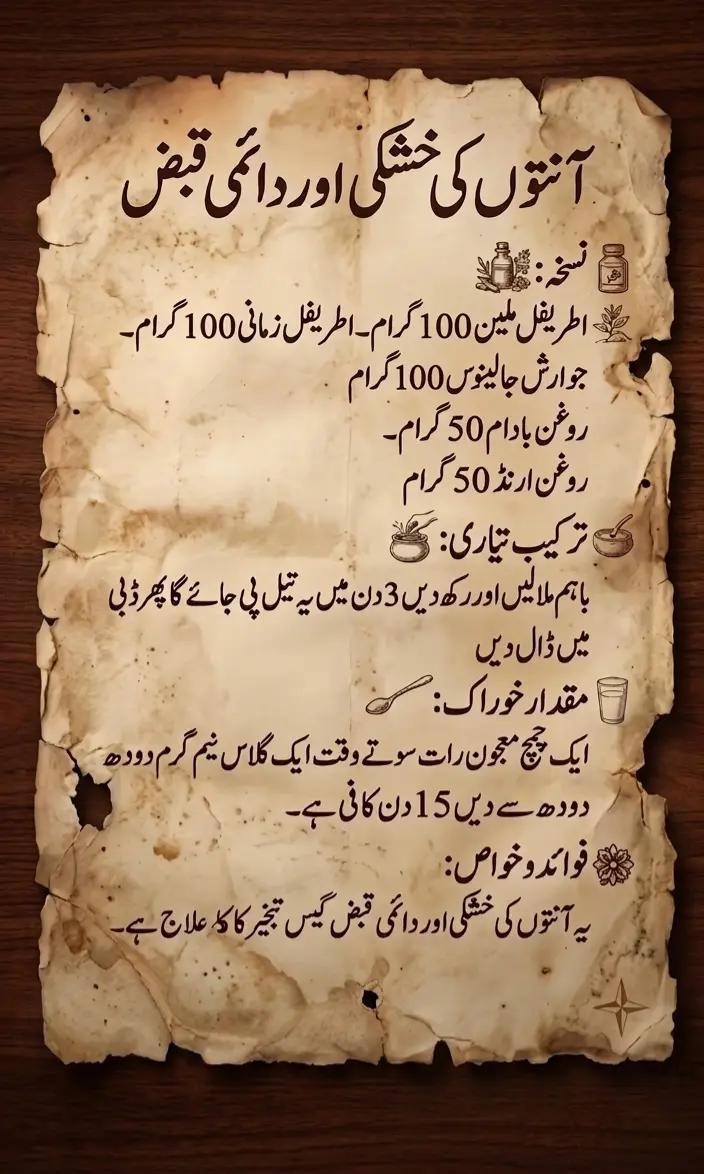 آنتوں کی خشکی اور دائمی قبض
نسخہ:
اطریفل ملین 100 گرام۔ اطریفل زمانی 100 گرام۔
جوارش جالینوس 100 گرام
روغن بادام 50 گرام۔
روغن ارنڈ 50 گرام
ترکیب تیاری:
باہم ملالیں اور رکھ دیں 3 دن میں یہ تیل پی جائے گا پھر ڈبی
میں ڈال دیں
مقدار خوراک:
ایک چمچ معجون رات سوتے وقت ایک گلاس نیم گرم دودھ
دودھ سے دیں 15 دن کافی ہے۔
فوائد و خواص:
یہ آنتوں کی خشکی اور دائمی قبض گیس تبخیر کا علاج ہے۔